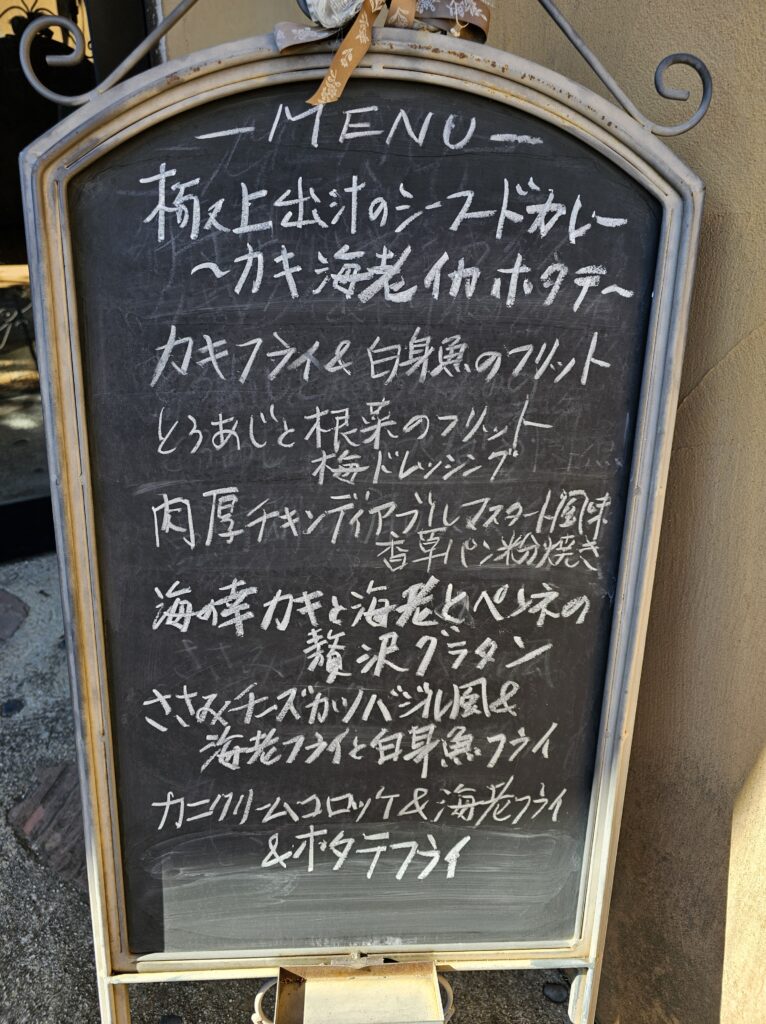 ーMENUー
極上出汁のシーフードカレー
～カキ海老イカホタテ～
カキフライ&白身魚のフリット
とろあじと根菜のフリット
梅ドレッシング
肉厚チキンディアブルマスタード風味
香草パン粉焼き
海の幸カキと海老とペンネの
贅沢グラタン
ささみチーズカツバジル風&
海老フライと白身魚フライ
カニクリームコロッケ&海老フライ
&ホタテフライ